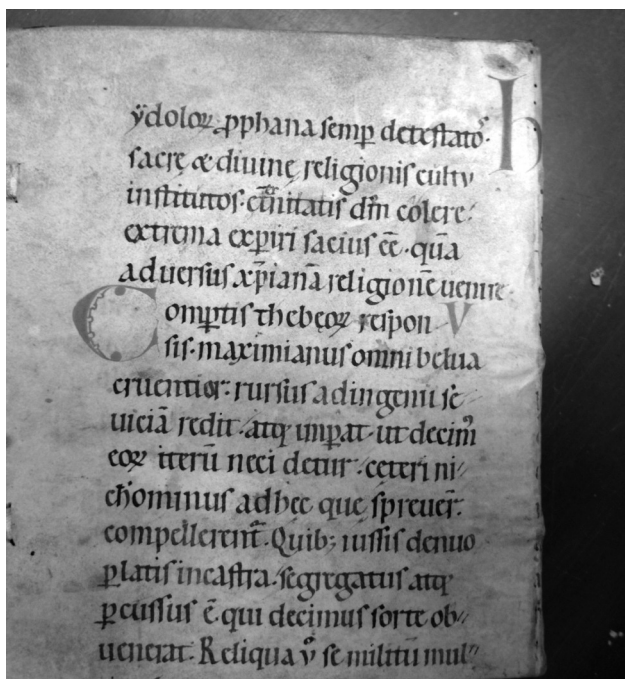 ÿdoloꝝ ꝓphana semꝑ detestatoˢ·
sacrę & diuinę religionis cultu
institutos· et̃nitatis dn̄i colere·
extrema exꝑiri sacius eē· quā
aduersus xp̄ianā religionē uenire·
Comꝑtis thebęoꝝ respon V
sis· maximianus omni belua
cruentior· rursus ad ingenii sę
uiciā redit· atq; imꝑat· ut decim̄
eoꝝ iterū neci detur· ceteri ni
ch̄ominus ad hęc quę spreuer̄·
compellerent̃· Quib; iussis denuo
ꝑlatis in castra· segregatus atq;
ꝑcussus ē· qui decimus sorte ob
uenerat· Reliqua v̊ se militū mul
h